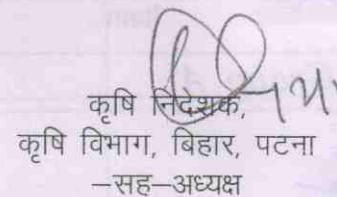 कृषि निदेशक,
कृषि विभाग, बिहार, पटना
–सह–अध्यक्ष